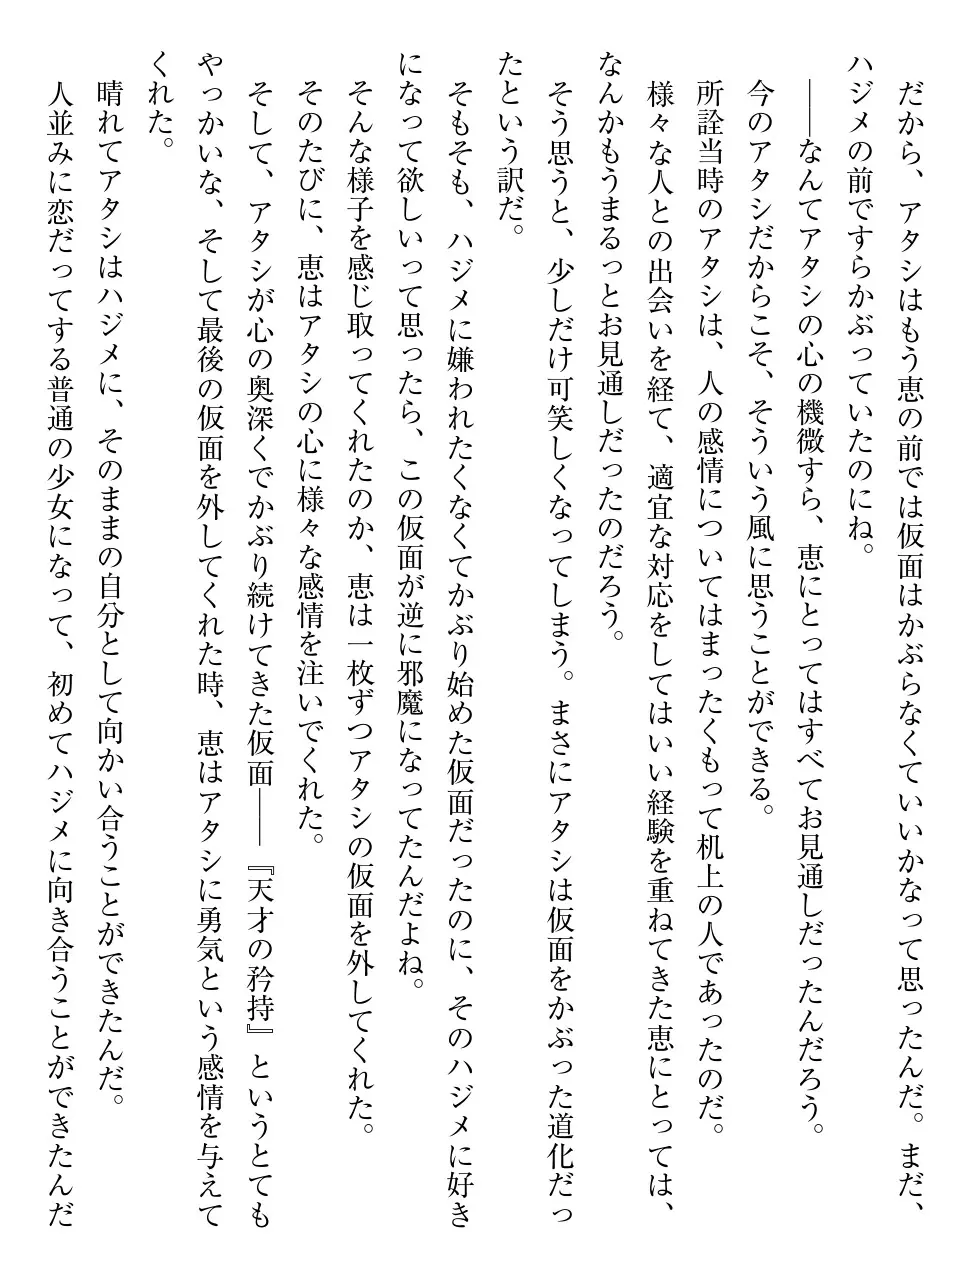 だから、アタシはもう恵の前では仮面はかぶらなくていいかなって思ったんだ。まだ、
ハジメの前ですらかぶっていたのにね。
――なんてアタシの心の機微すら、恵にとってはすべてお見通しだったんだろう。
今のアタシだからこそ、そういう風に思うことができる。
所詮当時のアタシは、人の感情についてはまったくもって机上の人であったのだ。
様々な人との出会いを経て、適宜な対応をしてはいい経験を重ねてきた恵にとっては、
なんかもうまるっとお見通しだったのだろう。
そう思うと、少しだけ可笑しくなってしまう。まさにアタシは仮面をかぶった道化だっ
たという訳だ。
そもそも、ハジメに嫌われたくなくてかぶり始めた仮面だったのに、そのハジメに好き
になって欲しいって思ったら、この仮面が逆に邪魔になってたんだよね。
そんな様子を感じ取ってくれたのか、恵は一枚ずつアタシの仮面を外してくれた。
そのたびに、恵はアタシの心に様々な感情を注いでくれた。
そして、アタシが心の奥深くでかぶり続けてきた仮面――『天才の矜持』というとても
やっかいな、そして最後の仮面を外してくれた時、恵はアタシに勇気という感情を与えて
くれた。
晴れてアタシはハジメに、そのままの自分として向かい合うことができたんだ。
人並みに恋だってする普通の少女になって、初めてハジメに向き合うことができたんだ